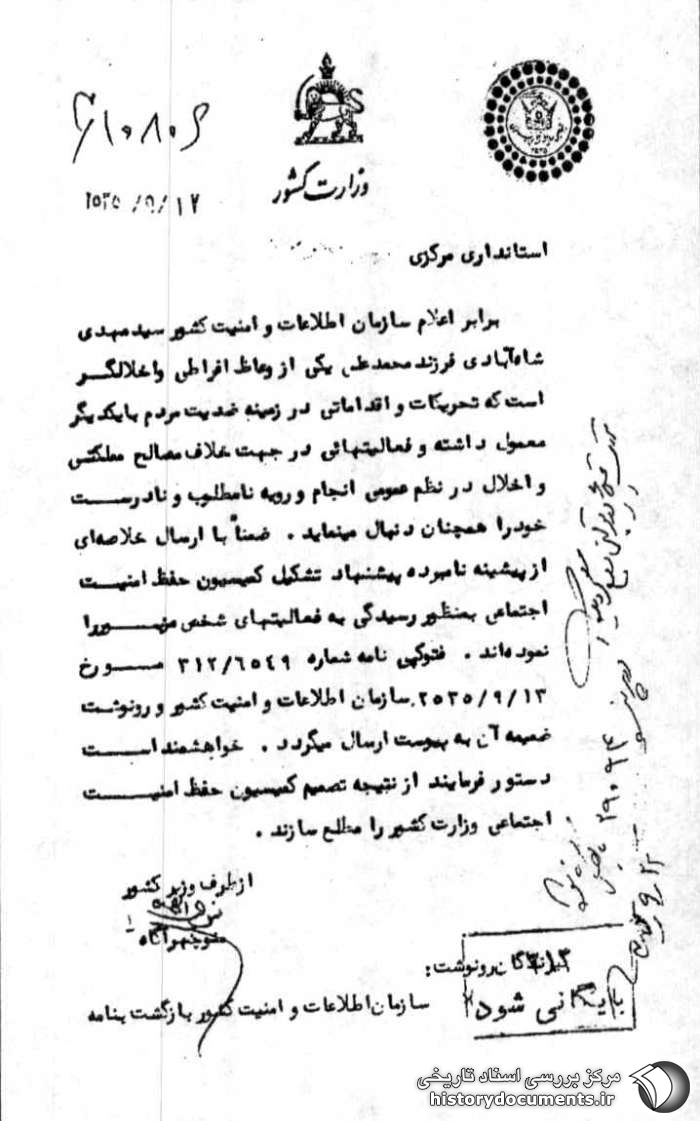 وزارت کشور
۲۵۳۵/۹/۱۷
استانداری مرکزی
برابر اعلام سازمان اطلاعات و امنیت کشور سید مهدی
شاه‌آبادی فرزند محمدعلی یکی از وعاظ افراطی و اخلالگر
است که تحریکات و اقداماتی در زمینه ضدیت مردم با یکدیگر
معمول داشته و فعالیتهائی در جهت خلاف مصالح مملکتی
و اخلال در نظم عمومی انجام و رویه نامطلوب و نادرست
خود را همچنان دنبال مینماید . ضمناً با ارسال خلاصه‌ای
از پیشینه نامبرده پیشنهاد تشکیل کمیسیون حفظ امنیت
اجتماعی بمنظور رسیدگی به فعالیتهای شخص مزبور را
نموده‌اند . فتوکپی نامه شماره ۳۱۲/۶۵۴۹ مورخ
۲۵۳۵/۹/۱۳ سازمان اطلاعات و امنیت کشور و رونوشت
ضمیمه آن به پیوست ارسال میگردد . خواهشمند است
دستور فرمایند از نتیجه تصمیم کمیسیون حفظ امنیت
اجتماعی وزارت کشور را مطلع سازند .
از طرف وزیر کشور
منوچهر آگاه
گیرندگان رونوشت :
سازمان اطلاعات و امنیت کشور بازگشت بنامه
۳۱۲
بایگانی شود
مرکز بررسی اسناد تاریخی
historydocuments.ir